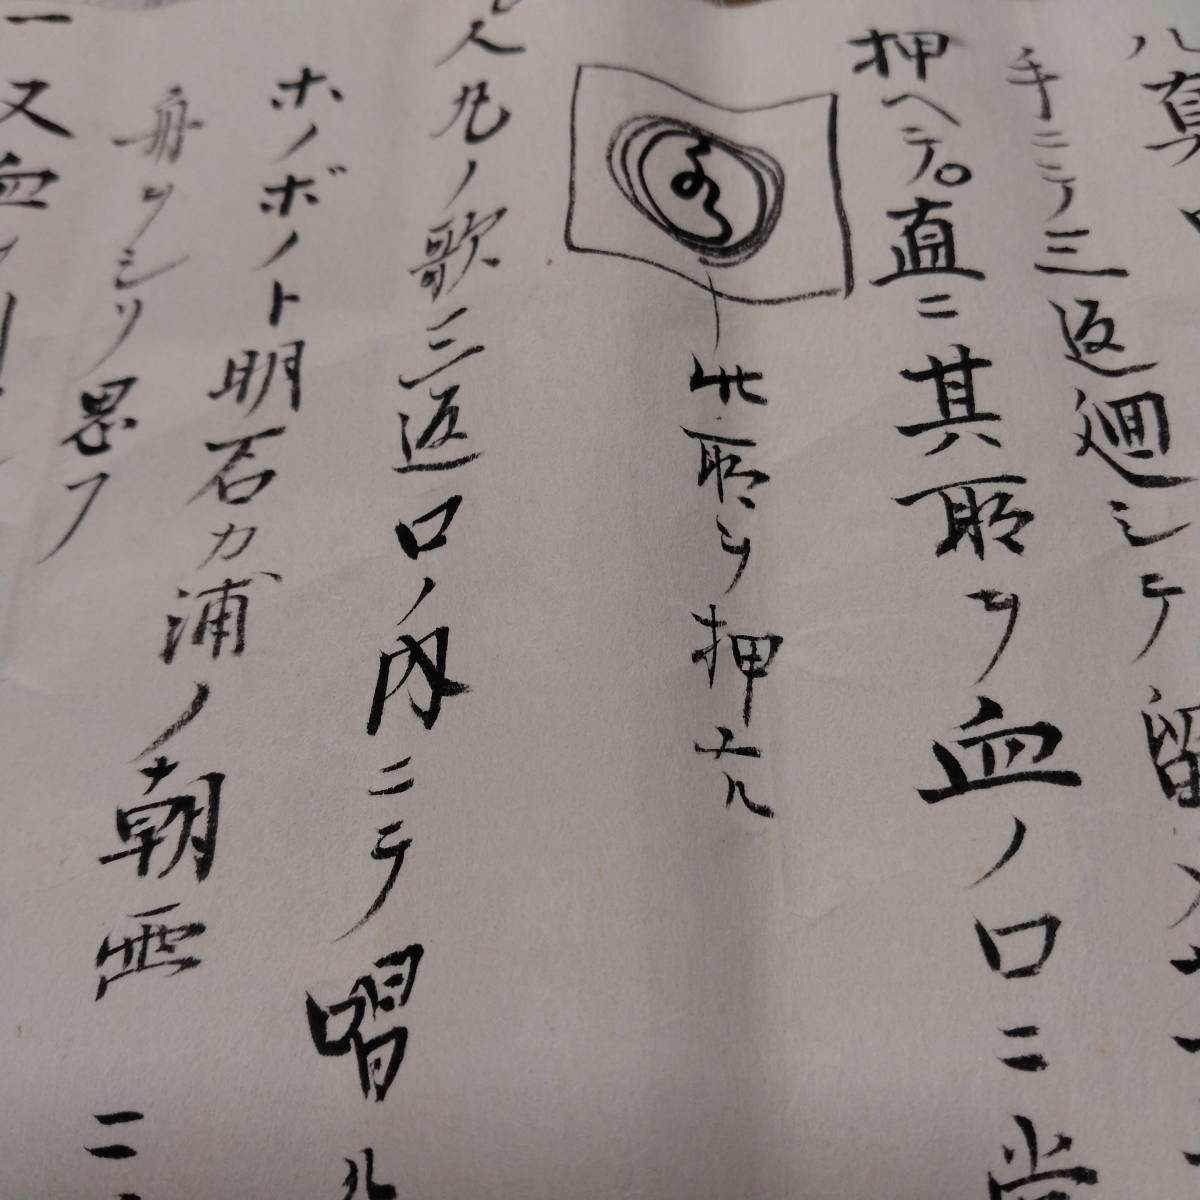 ハ真ロ
手ニテ三返廻シテ留メ
押ヘテ。直ニ其所ヲ血ノ口ニ当
此所ヲ押エル
人丸ノ歌三返口ノ内ニテ唱ル
ホノボノト明石カ浦ノ朝
舟ヲシソ思フ
一又血